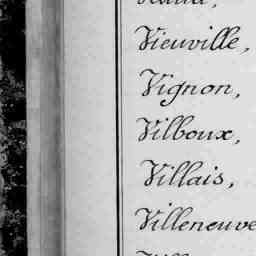 Vieuville,
Vignon,
Vilboux,
Villais,
Villeneuve